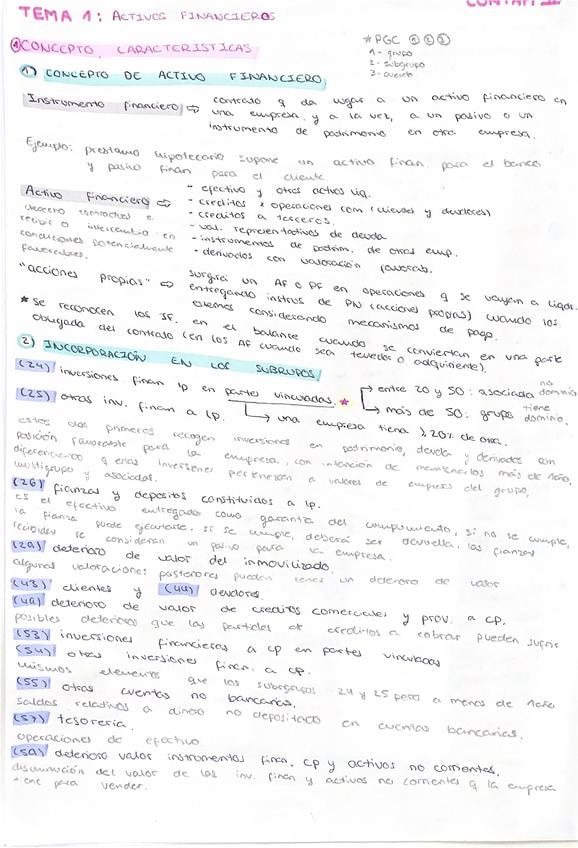 TEMA 1: ACTIVOS FINANCIEROS
① CONCEPTO, CARACTERISTICAS
* PGC ① ② ③
1 - grupo
2 - subgrupo
3 - cuenta
1) CONCEPTO DE ACTIVO FINANCIERO
Instrumento financiero ⇨ contrato q da lugar a un activo financiero en
una empresa, y a la vez, a un pasivo o un
instrumento de patrimonio en otra empresa.
Ejemplo: prestamo hipotecario supone un activo finan. para el banco
y pasivo finan para el cliente
Activo Financiero ⇨
derecho contractual a
recibir o intercambio en
condiciones potencialmente
favorables.
- efectivo y otros activos liq.
- creditos x operaciones com (clientes y deudores)
- creditos a terceros.
- val. representativos de deuda
- instrumentos de patrim. de otras emp.
- derivados con valoración favorab.
"acciones propias" ⇨ surgirá un AF o PF en operaciones q se vayan a liqdr.
entregando instros de PN (acciones propias) cuando los
estemos considerando mecanismos de pago.
* se reconocen los IF. en el balance cuando se conviertan en una parte
obligada del contrato (en los AF cuando sea tenedor o adquiriente).
2) INCORPORACIÓN EN LOS SUBGRUPOS
(24) inversiones finan lp en partes vinculadas. ★
(25) otras inv. finan a lp.
→ entre 20 y 50: asociada no dominio
→ más de 50: grupo tiene dominio.
↳ una empresa tiena 20% de otra.
estos dos primeros recogen inversiones en patrimonio, deuda y derivados con
posición favorable para la empresa, con intención de mantenerlos más de 1año,
diferenciando q esas inversiones pertenezcan a valores de empresas del grupo,
multigrupo y asociadas.
(26) fianzas y depositos constituidos a lp.
es el efectivo entregado como garantia del cumplimiento, si no se cumple,
la fianza puede ejecutarse. si se cumple, deberá ser devuelta. las fianzas
recibidas se consideran un pasivo para la empresa.
(29) deterioro de valor del inmovilizado.
algunas valoraciones posteriores pueden tener un deterioro de valor
(43) clientes y (44) deudores.
(49) deterioro de valor de creditos comerciales y prov. a cp.
posibles deterioros que las partidas de creditos a cobrar pueden sufrir
(53) inversiones financieras a cp en partes vinculadas
(54) otras inversiones finan. a cp.
mismos elementos que los subgrupos 24 y 25 pero a menos de 1año
(55) otras cuentas no bancarias.
saldos relativos a dinero no depositado en cuentas bancarias.
(57) tesoreria.
operaciones de efectivo
(59) deterioro valor instrumentos finan. cp y activos no corrientes.
disminución del valor de las inv. finan y activos no corrientes q la empresa
tiene para vender.